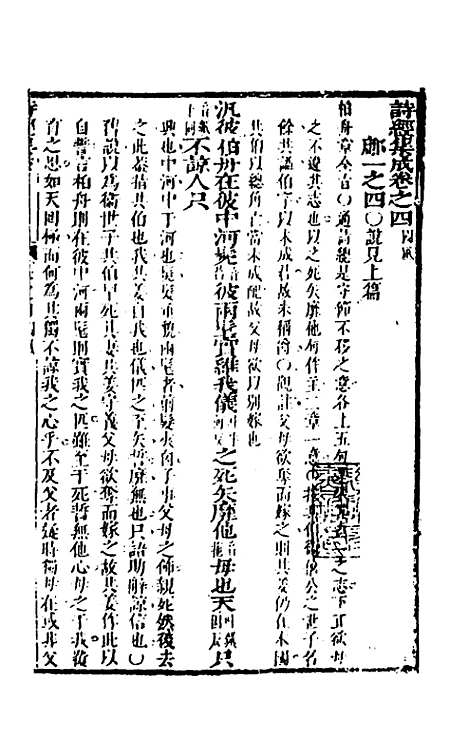 詩經集成卷之四 國風
鄘一之四○說見上篇
柏舟章全旨○通詩總是守節不移之意各上五句之志下正欲母
之不違其志也以之死矢靡他句作主二章一意○按釐侯之世子名
餘共諡伯字以未成君故未稱爵○觀註父母欲奪而嫁之則共姜仍在本國
共伯以總角直當未成配故父母欲以別嫁也
汎彼柏舟在彼中河髧彼兩髦實維我儀之死矢靡他母也天只
不諒人只
興也中河中于河也髧髮垂貌兩髦者剪髮夾囟子事父母之飾親死然後去
之此蓋指共伯也我共姜自我也儀匹之至矢誓靡無也只語助辭諒信也○
舊說以爲衞世子共伯早死其妻共姜守義父母欲奪而嫁之故共姜作此以
自誓言柏舟則在彼中河兩髦則實我之匹雖至于死誓無他心母之于我覆
育之恩如天罔極而何爲其獨不諒我之心乎不及父者疑時獨母在或非父